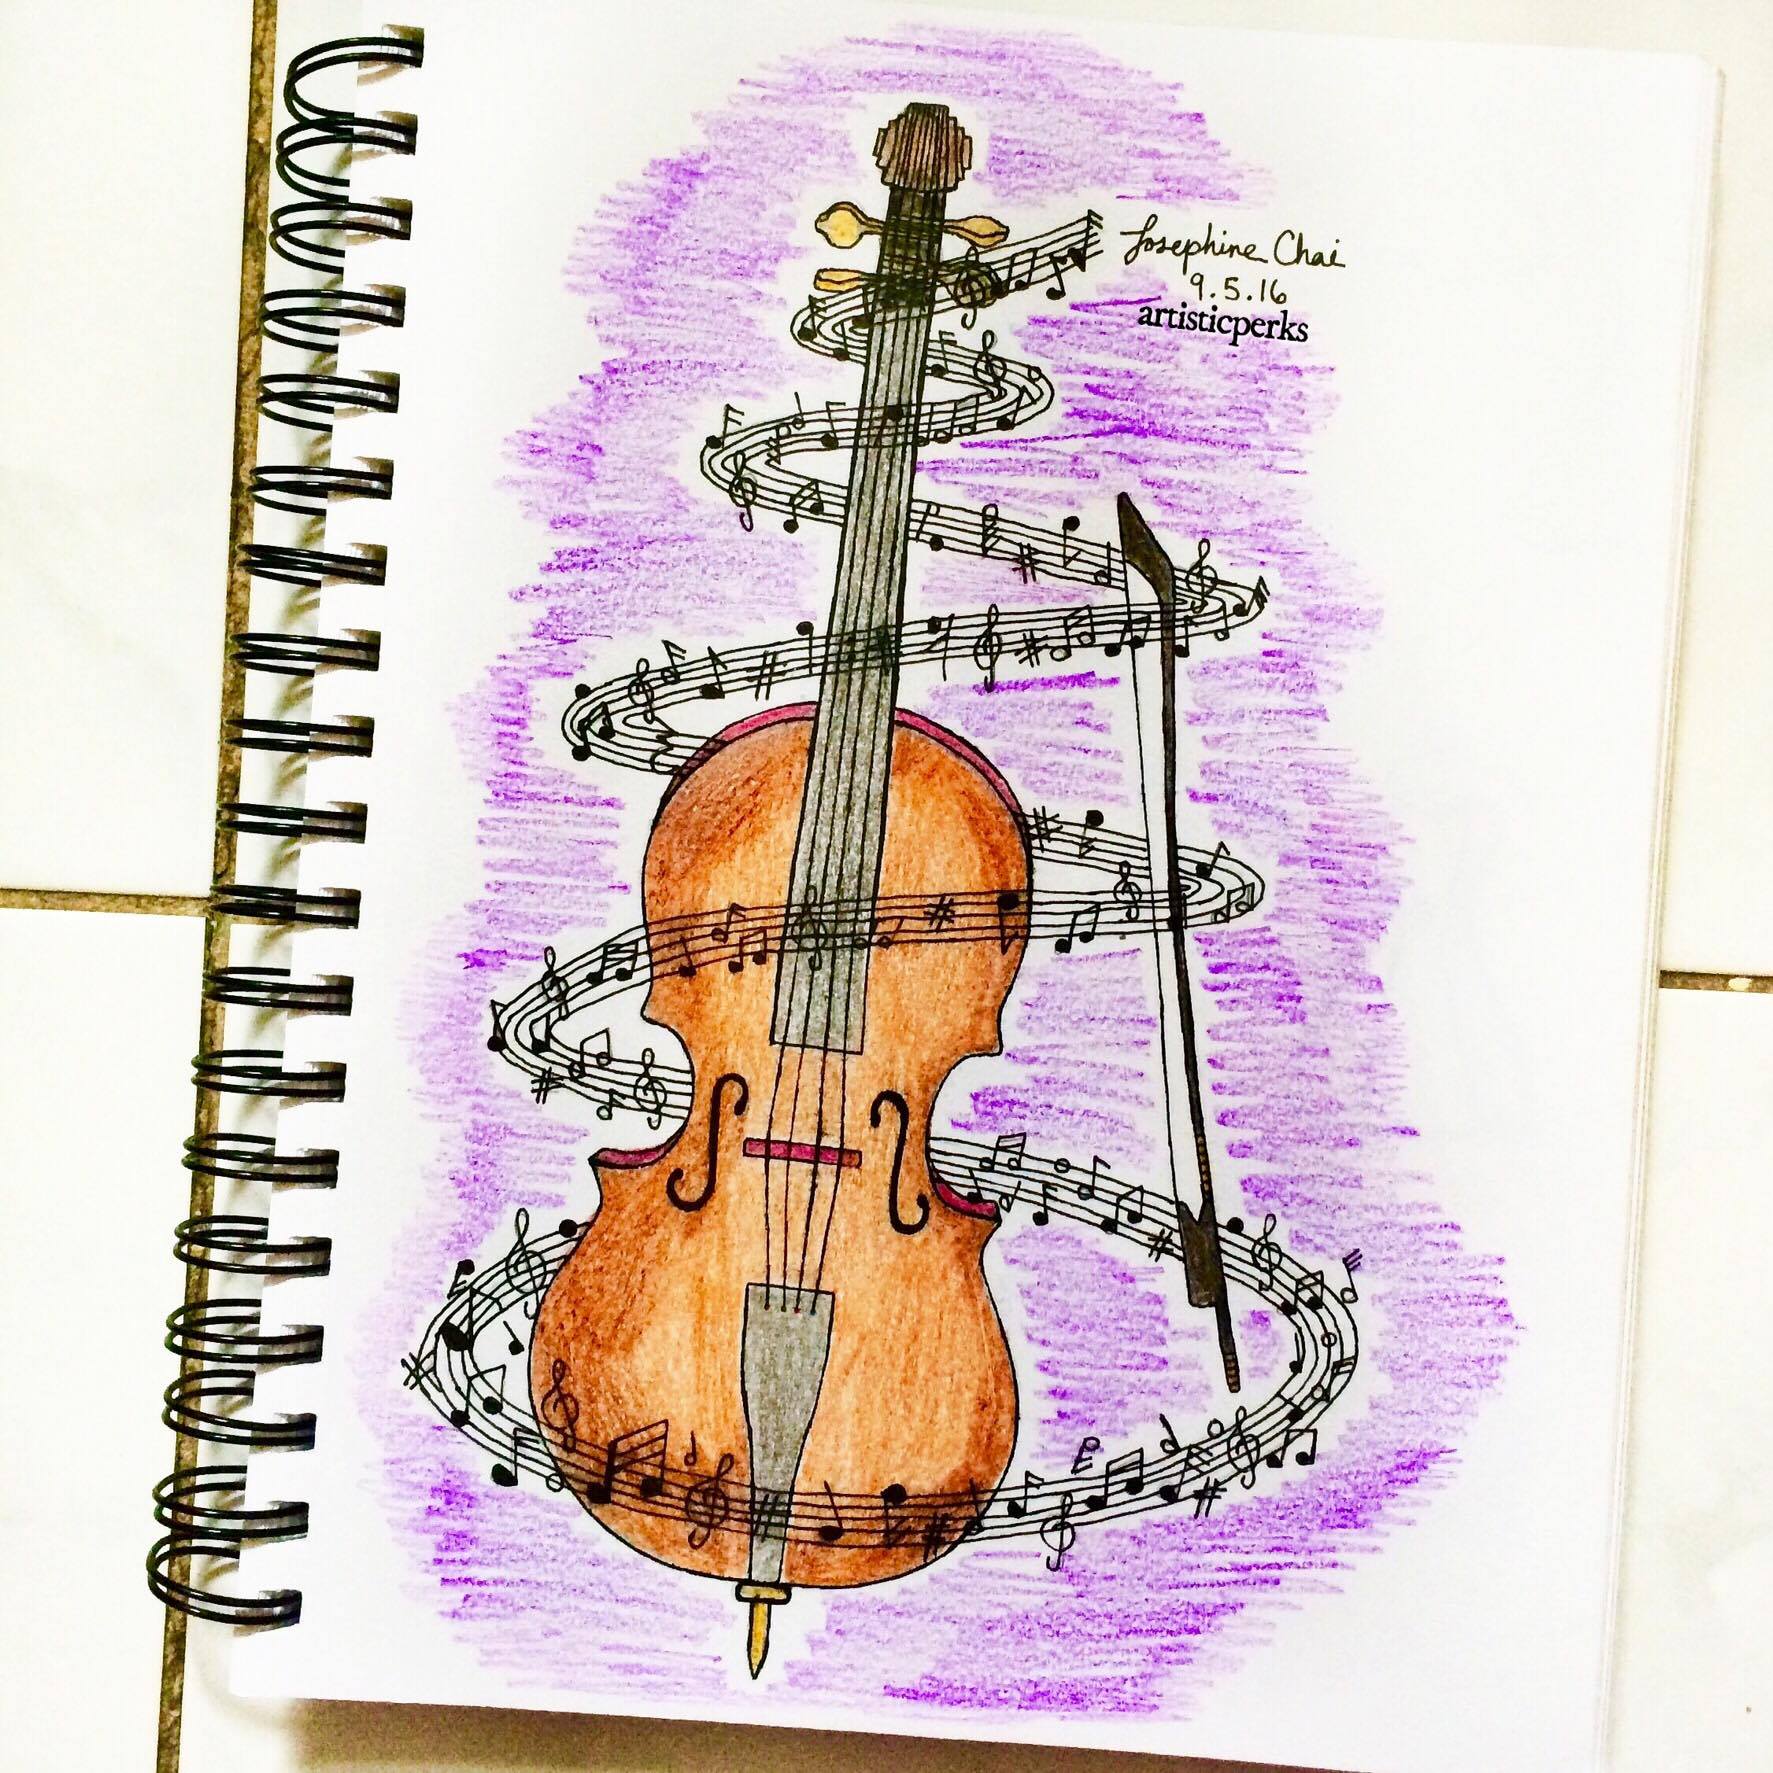 Josephine Chai
9.5.16
artisticperks